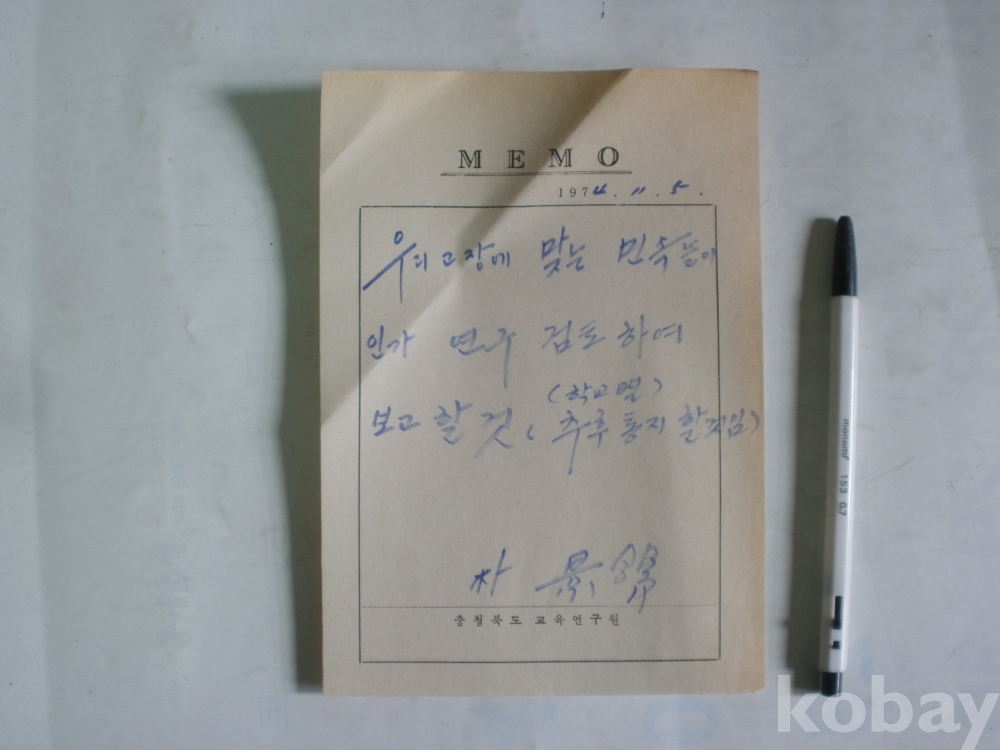 MEMO
1974. 11. 5.
우리 고장에 맞는 민속놀이
인가 연구 검토하여
(학교별)
보고할 것 (추후 통지 할 것임)
朴 景
충청북도 교육연구원
monami 153 0.7
kobay